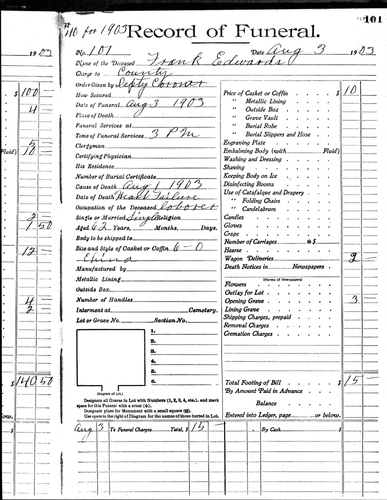 #10 for 1903
101
Record of Funeral.
No. 101
Date Aug 3 1903
Name of the Deceased Frank Edwards
Charge to County
Order Given by Depty Coroner
How Secured
Date of Funeral Aug 3 1903
Place of Death
Funeral Services at
Time of Funeral Services 3 P M
Clergyman
Certifying Physician
His Residence
Number of Burial Certificate
Cause of Death Aug 1 1903
Date of Death Heart Failure
Occupation of the Deceased Laborer
Single or Married Single Religion
Aged 62 Years, Months, Days.
Body to be shipped to
Size and Style of Casket or Coffin 6-0
China
Manufactured by
Metallic Lining
Outside Box
Number of Handles
Interment at Cemetery.
Lot or Grave No. Section No.
1.
2.
3.
4.
5.
6.
Diagram of Lot
Designate all Graves in Lot with Numbers (1, 2, 3, 4, etc.), and mark
space for this Funeral with a cross (+).
Designate place for Monument with a small square
Use space to the right of Diagram for the names of those buried in Lot.
Price of Casket or Coffin $10
" Metallic Lining
" Outside Box
" Grave Vault
" Burial Robe
" Burial Slippers and Hose
Engraving Plate
Embalming Body (with Fluid)
Washing and Dressing
Shaving
Keeping Body on Ice
Disinfecting Rooms
Use of Catafalque and Drapery
" Folding Chairs
" Candelabrum
Candles
Gloves
Crape
Number of Carriages @ $
Hearse
Wagon Deliveries 2 -
Death Notices in Newspapers
Flowers
Outlay for Lot
Opening Grave 3
Lining Grave
Shipping Charges, prepaid
Removal Charges
Cremation Charges
Total Footing of Bill $15 -
By Amount Paid in Advance
Balance
Entered into Ledger, page or below.
Aug 3 To Funeral Charges Total, $15 - By Cash $
1903
$100
4
5
Fluid) 10
2
1 50
12
4
2
$140 50
low.
$